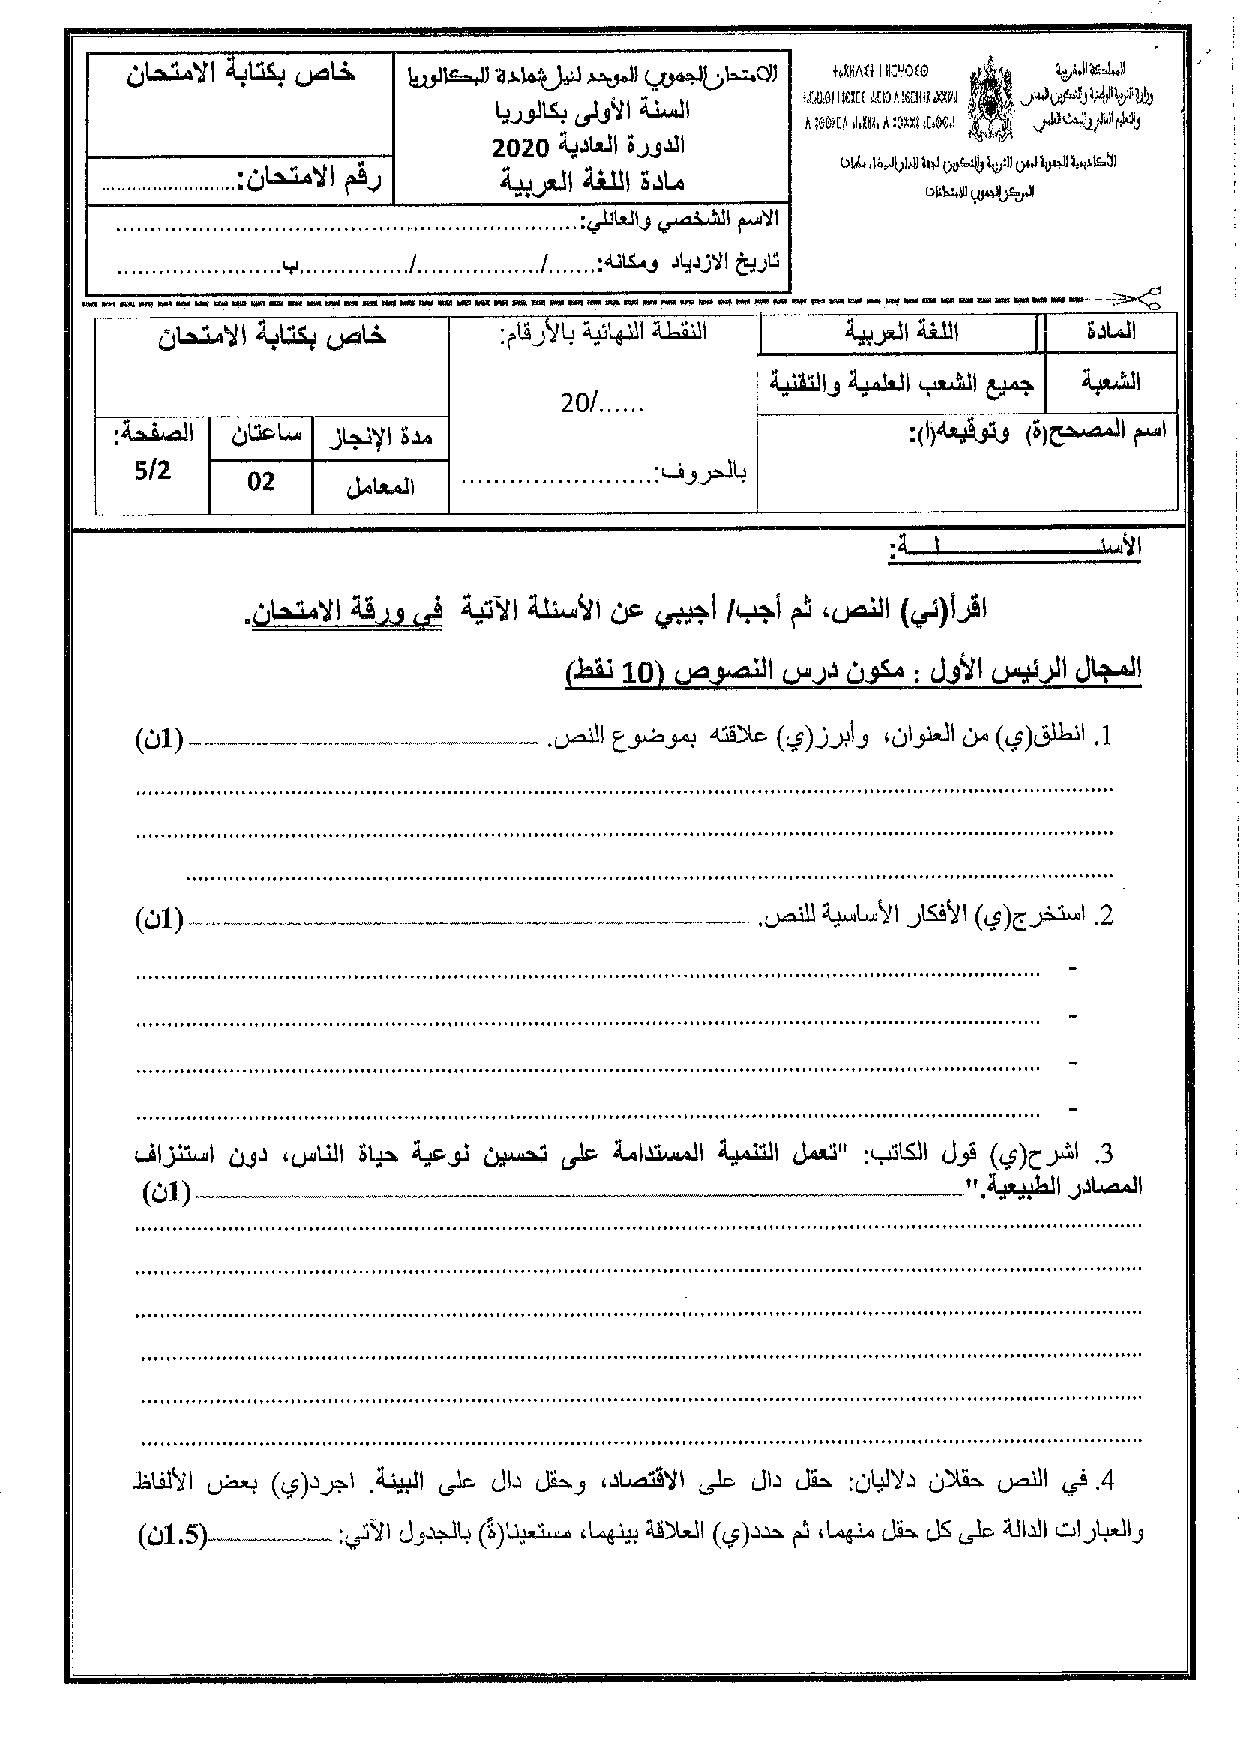 المملكة المغربية
وزارة التربية الوطنية والتكوين المهني
والتعليم العالي والبحث العلمي
الأكاديمية الجهوية لمهن التربية والتكوين لجهة الدار البيضاء سطات
المركز الجهوي للامتحانات
الامتحان الجهوي الموحد لنيل شهادة البكالوريا
السنة الأولى بكالوريا
الدورة العادية 2020
مادة اللغة العربية
خاص بكتابة الامتحان
رقم الامتحان:..........................
الاسم الشخصي والعائلي:....................................................................
تاريخ الازدياد ومكانه:......./................../................ب........................
المادة
اللغة العربية
الشعبة
جميع الشعب العلمية والتقنية
اسم المصحح(ة) وتوقيعه(ا):
النقطة النهائية بالأرقام:
20/......
بالحروف:.........................
خاص بكتابة الامتحان
مدة الإنجاز
ساعتان
الصفحة:
المعامل
02
5/2
الأسئـــــــــــلـــة:
اقرأ(ئي) النص، ثم أجب/ أجيبي عن الأسئلة الآتية في ورقة الامتحان.
المجال الرئيس الأول : مكون درس النصوص (10 نقط)
1. انطلق(ي) من العنوان، وأبرز(ي) علاقته بموضوع النص. (1ن)
2. استخرج(ي) الأفكار الأساسية للنص. (1ن)
-
-
-
-
3. اشرح(ي) قول الكاتب: "تعمل التنمية المستدامة على تحسين نوعية حياة الناس، دون استنزاف
المصادر الطبيعية." (1ن)
4. في النص حقلان دلاليان: حقل دال على الاقتصاد، وحقل دال على البيئة. اجرد(ي) بعض الألفاظ
والعبارات الدالة على كل حقل منهما، ثم حدد(ي) العلاقة بينهما، مستعينا(ةً) بالجدول الآتي: (1.5ن)